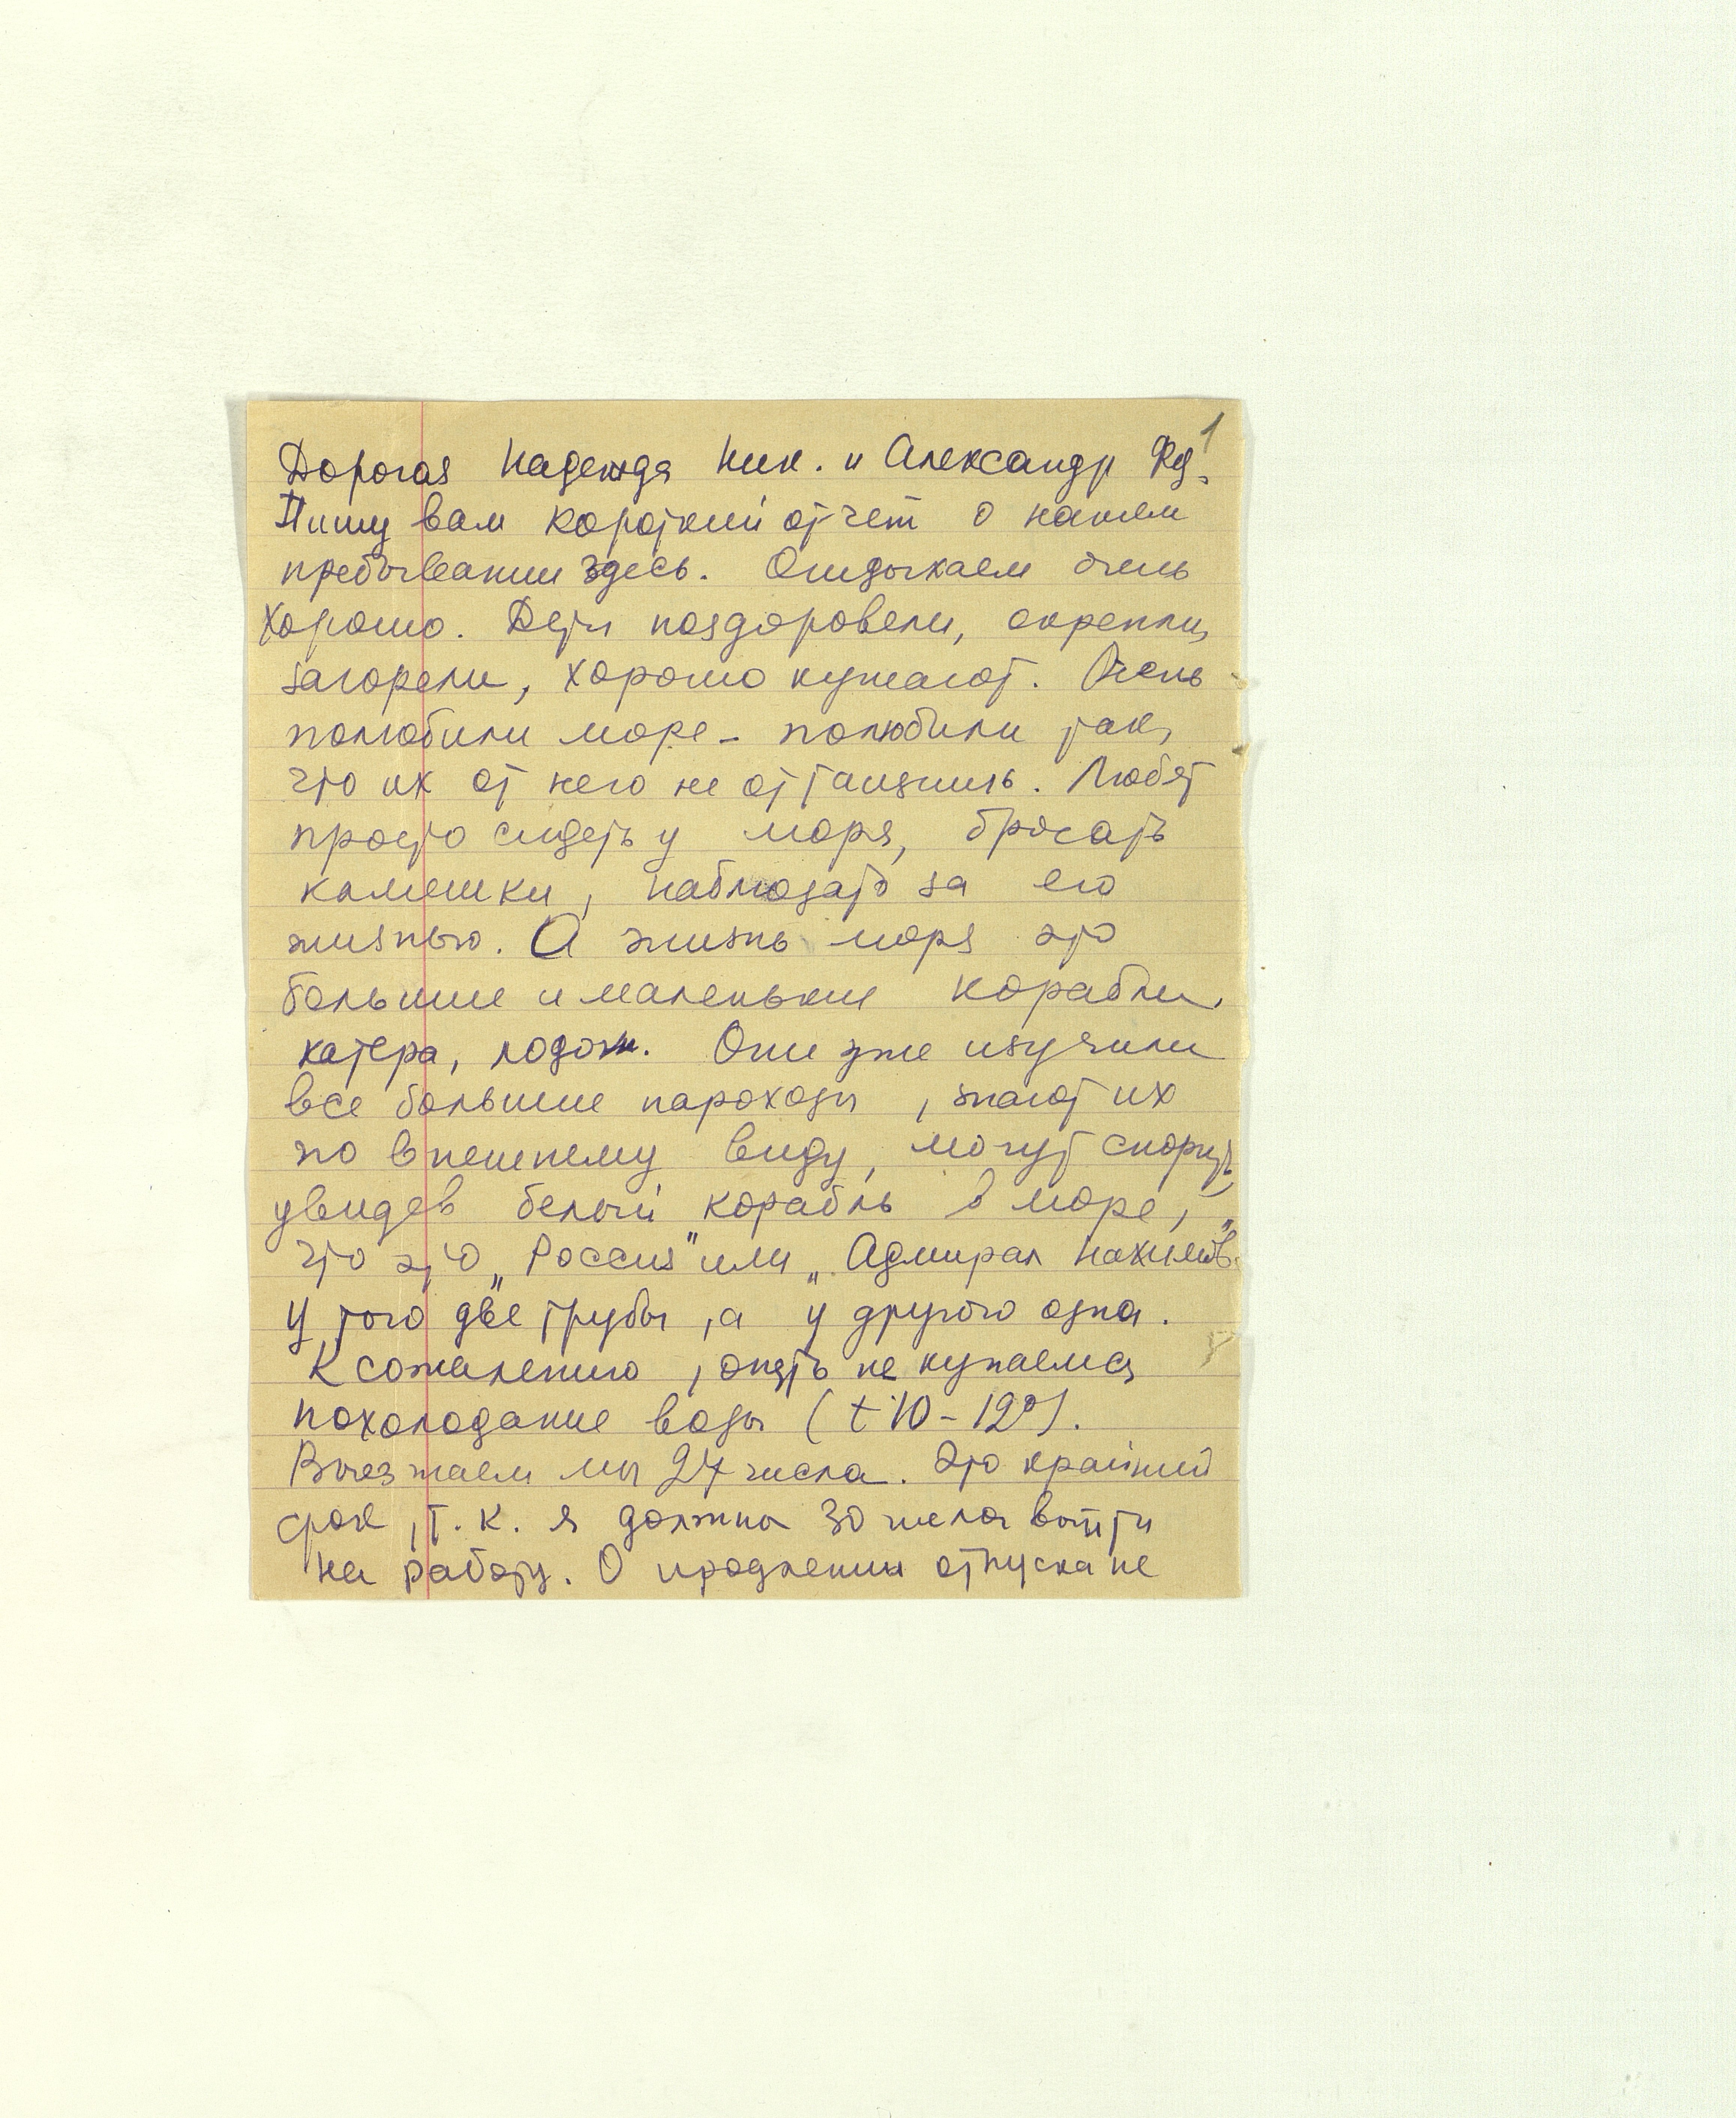 1
Дорогая Надежда Ник. и Александр Фед.
Пишу вам короткий отчет о нашем
пребывании здесь. Отдыхаем очень
хорошо. Дети поздоровели, окрепли,
загорели, хорошо кушают. Очень
полюбили море – полюбили так,
что их от него не оттащишь. Любят
просто сидеть у моря, бросать
камешки, наблюдать за его
жизнью. А жизнь моря это
большие и маленькие корабли,
катера, лодки. Они уже изучили
все большие пароходы, знают их
по внешнему виду, могут спорить,
увидев белый корабль в море,
что это „Россия" или „Адмирал Нахимов".
У того две трубы, а у другого одна.
К сожалению, опять не купаемся
похолодание воды (t 10 – 12°).
Выезжаем мы 27 числа. Это крайний
срок, т. к. я должна 30 числа выйти
на работу. О продлении отпуска не